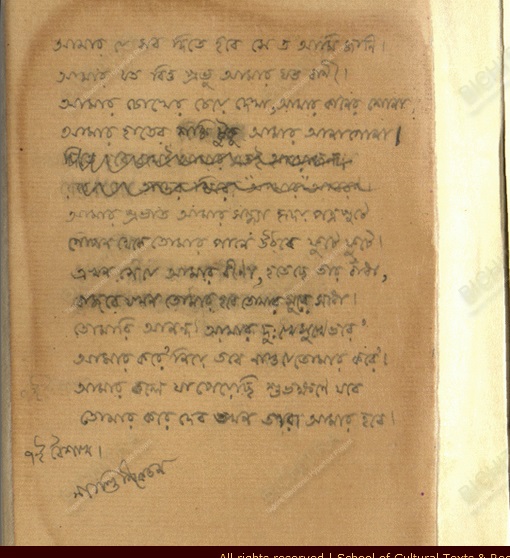 আমার যে সব দিতে হবে সে ত আমি জানি।
আমার যত বিত্ত প্রভু আমার যত বাণী।
আমার চোখের চেয়ে দেখা, আমার কানের শোনা
আমার হাতের টুকু আমার আনাগোনা।
আমার প্রভাত আমার সন্ধ্যা হৃদয় পত্রপুটে
গোপন থেকে তোমার পানে উঠবে ফুটে ফুটে।
এখন সে যে আমার বীণা, হতেছে তার বাঁধা,
বাজবে যখন তোমার হবে তোমার সুরে সাধা।
তোমারি আনন্দ আমার দুঃখে সুখে ভরে'
আমার করে' নিয়ে তবে নাও যে তোমার করে'।
আমার বলে যা পেয়েছি শুভক্ষণে যবে
তোমার করে দেব তখন তারা আমার হবে।
৭ই বৈশাখ।
শান্তিনিকেতন
All rights reserved | School of Cultural Texts &